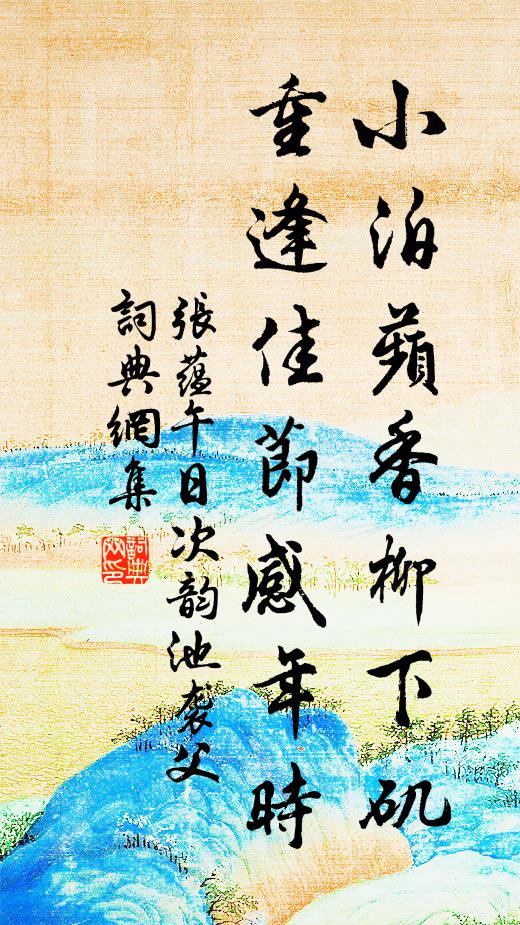 小泊蘋香柳下矶
重逢佳節感年時
張蘊午日次韵池袭父
詞典網集
詞典网印